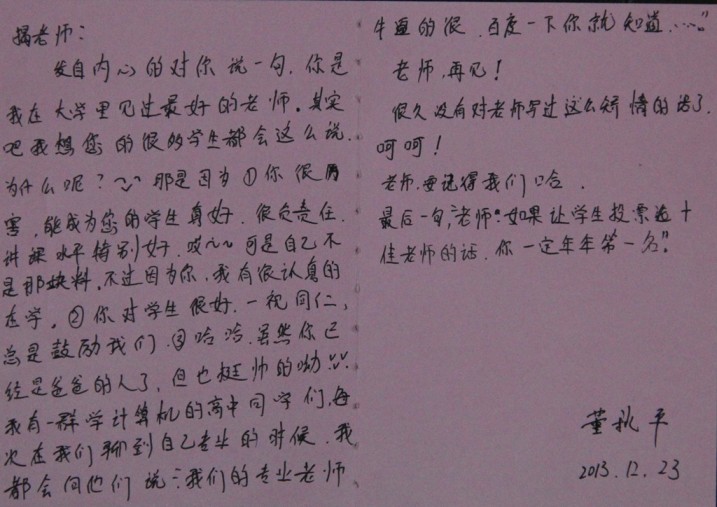 揭老师：
发自内心的对你说一句，你是
我在大学里见过最好的老师。其实
吧我想您的很多学生都会这么说.
为什么呢？~ 那是因为①你很厉
害，能成为您的学生真好. 很负责任.
讲课水平特别好. 哎~~ 可是自己不
是那块料，不过因为你，我有很认真的
在学，②你对学生很好，一视同仁，
总是鼓励我们.③哈哈，虽然你已
经是爸爸的人了，但也挺帅的呦!!
我有一群学计算机的高中同学们，每
次在我们聊到自己专业的时候，我
都会向他们说：“我们的专业老师
牛逼的很，百度一下你就知道……”
老师，再见！
很久没有对老师写过这么矫情的话了.
呵呵！
老师.要记得我们哈.
最后一句，“老师：如果让学生投票选十
佳老师的话，你一定年年第一名”.
董秋平
2013.12.23